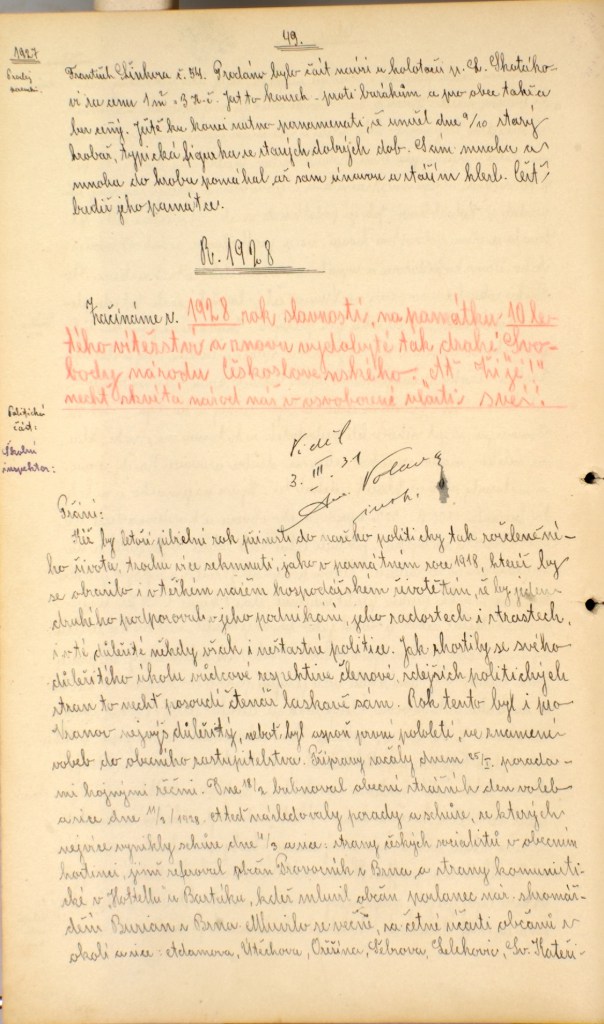 49.
1927
František Šinkora č. 34. Prodáno bylo část návsi u kolotočí p. L. Skotáko-
vi za cenu 1 m² 3 Kč. Jest to kousek proti barákům a pro obec také a
bez ceny. Ještě ku konci nutno poznamenati, že umřel dne 9/10 starý
hrobař, typická figurka ze starých dobrých dob. Sám mnoha a
mnoha do hrobu pomáhal až sám únavou a stářím klesl. Čest
budiž jeho památce.
R. 1928
Začínáme r. 1928 rok slavností, na památku 10 le-
tého vítězství a znovu vydobyté tak drahé Svo-
body národu Československého. Ať žije!"
nechť zkvétá národ náš v osvobozené vlasti své!
Politická
část:
Školní
inspektor:
Viděl
3. III. 31
insp.
Přání:
Kéž by letoší jubilejní rok přinesl do našeho politicky tak rozleněné-
ho života trochu více semknutí, jako v památném roce 1918, kteréž by
se obrazilo i v těžkém našem hospodářském životě tím, že by jeden
druhého podporoval v jeho podnikání, jeho radostech i strastech,
i v té důležité někdy však i neštastné politice. Jak zhostily se svého
důležitého úkolu vůdcové respektive členové, zdejších politických
stran to nechť posoudí čtenář laskavě sám. Rok tento byl i pro
Vranov nejvýš důležitý, neboť byl aspoň první pololetí, ve znamení
voleb do obecního zastupitelstva. Přípravy začaly dnem 25/I. porada-
mi hojnými řečmi. Dne 18/2 bubnoval obecní strážník den voleb
a sice dne 11/3 1928. A teď následovaly porady a schůze, ze kterých
nejvíce vynikly schůze dne 4/3 a sice: strany českých socialistů v obecním
hostinci, jimž referoval občan Pravorník z Brna, a strany komunisti-
cké v "Hotelu" u Bartáku, kdež mluvil občan poslanec nár. shromáž-
dění Burian z Brna. Mluvilo se věčně, za četné účasti občanů z
okolí a sice: Adamova, Útěchova, Ořešína, Šebrova, Lelekovic, Sv. Kateři-